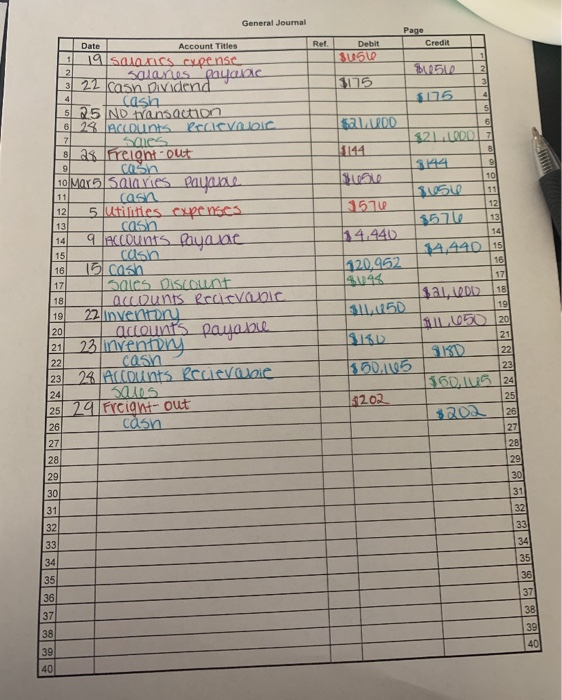 General Journal
Page
Date Account Titles Ref. Debit Credit
1 19 Salaries expense $656 1
2 Salaries payable $656 2
3 22 Cash Dividend $175 3
4 Cash $175 4
5 25 No transaction 5
6 28 Accounts Recievable $21,600 6
7 Sales $21,600 7
8 28 Freight-out $144 8
9 cash $144 9
10 Mar 5 Salaries payable $656 10
11 cash $656 11
12 5 Utilities expenses $576 12
13 cash $576 13
14 9 Accounts Payable $4,440 14
15 cash $4,440 15
16 15 cash $20,952 16
17 Sales Discount $648 17
18 accounts Recievable $21,600 18
19 22 Inventory $11,650 19
20 accounts payable $11,650 20
21 23 Inventory $180 21
22 cash $180 22
23 28 Accounts Recievable 23
24 Sales 24
25 29 Freight-out $202 25
26 cash $202 26
27 27
28 28
29 29
30 30
31 31
32 32
33 33
34 34
35 35
36 36
37 37
38 38
39 39
40 40